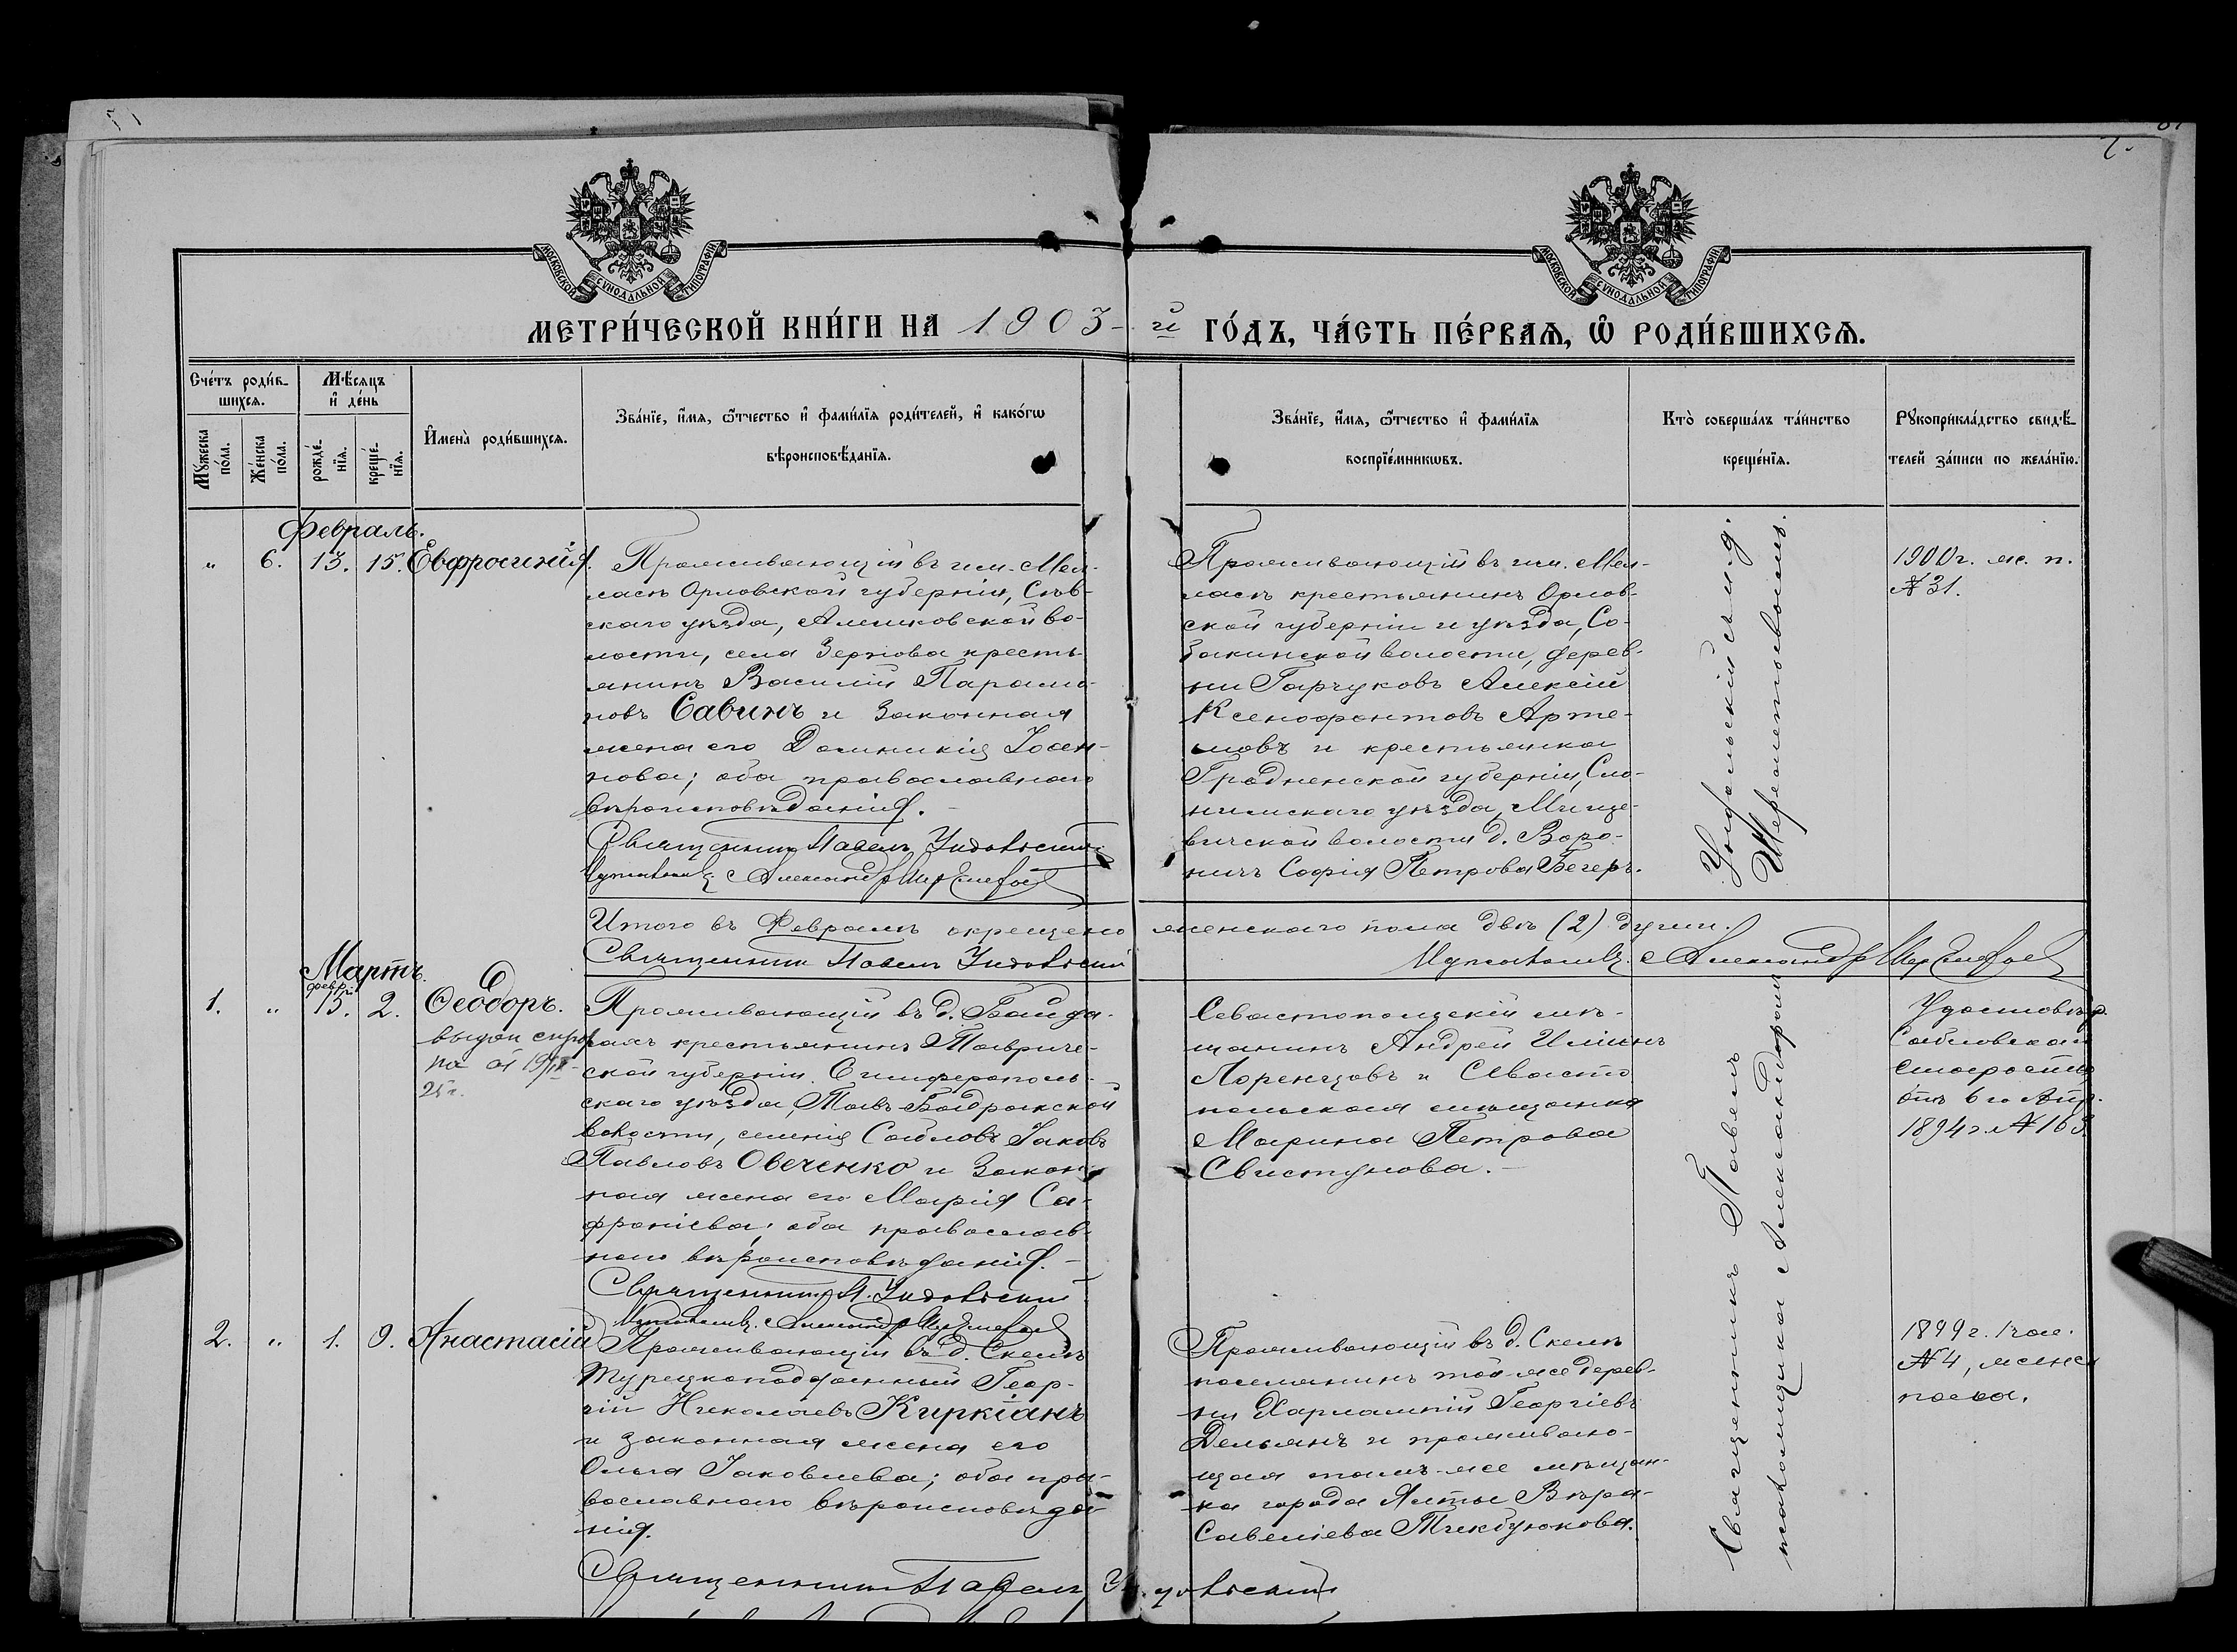 МОСКОВСКОЙ СѴНОДАЛЬНОЙ ТИПОГРАФІИ
МОСКОВСКОЙ СѴНОДАЛЬНОЙ ТИПОГРАФІИ
МЕТРИ́ЧЕСКОЙ КНИ́ГИ НА 1903-й ГО́ДЪ, ЧА́СТЬ ПЕ́РВАѦ, Ѿ РОДИ́ВШИХСѦ.
Сче́тъ роди́в-
шихсѧ.
Мѣ́сяцъ
и҆ де́нь
Мꙋ́жеска
по́ла.
Же́нска
по́ла.
рожде́-
нїѧ.
креще́-
нїѧ.
И҆мена̀ роди́вшихсѧ.
Зва́нїе, и҆́мѧ, ѻ҆́тчество и҆ фами́лїѧ роди́телей, и҆ како́гѡ
вѣроисповѣ́данїѧ.
Зва́нїе, и҆́мѧ, ѻ҆́тчество и҆ фами́лїѧ
воспрїе́мникѡвъ.
Кто̀ соверша́лъ та́инство
креще́нїѧ.
Рꙋкоприкла́дство свидѣ́-
телей за́писи по жела́нїю.
Февраль.
" 6. 13. 15. Евфросинія.
Проживающій въ им. Мел-
ласъ Орловской губерніи, Сѣв-
скаго уѣзда, Алешковской во-
лости, села Зернова кресть-
янинъ Василій Парамо-
новъ Савинъ и законная
жена его Домникія Іоан-
нова; оба православнаго
вѣроисповѣданія.
Священникъ Павелъ Ундольскій
Псаломщикъ Александръ
Проживающій въ им. Мел-
ласъ крестьянинъ Орлов-
ской губерніи и уѣзда, Со-
закинской волости, дерев-
ни Гарчуковъ Алексій
Ксенофонтовъ Арте-
мовъ и крестьянка
Гродненской губерніи, Сло-
нимскаго уѣзда, Мижe-
вичской волости д. Воро-
ничъ Софія Петрова Бегеръ.
Ундольскій съ и. д.
1900 г. ж. п.
№ 31.
Итого въ Февралѣ окрещено женскаго пола двѣ (2) души.
Священникъ Павелъ Ундольскій
Александръ
Мартъ.
февр.
1. " 15. 2. Ѳеодоръ.
выдан
25 г.
Проживающій въ д. Байда-
рахъ крестьянинъ Тавриче-
ской губерніи Симферополь-
скаго уѣзда, Тавъ-Бадракской
волости, селенія Сабловъ Іаковъ
Павловъ Овеченко и закон-
ная жена его Марія Са-
фроніева; оба православ-
наго вѣроисповѣданія.
Священникъ П. Ундольскій
Александръ
Севастопольскій мѣ-
щанинъ Андрей Илiинъ
Лоренцовъ и Севасто-
польская мѣщанка
Марина Петрова
Свистунова.
Священникъ Павелъ
Александромъ
Удостовѣр.
Сабловскаго
Старосты
отъ 6 го Апр.
1894 г. № 163
2. " 1. 9. Анастасій
Проживающій въ д. Скели
Турецкоподданный Геор-
гій Николаевъ Киркіанъ
и законная жена его
Ольга Іаковлева; оба пра-
вославнаго вѣроисповѣда-
нія.
Священникъ Павелъ Ундольскій
Проживающій въ д. Скели
поселянинъ той-же дерев-
ни Харлампій Георгіевъ
Дельянъ и проживаю-
щая тамъ-же мѣщан-
ка города Ялты Вѣра
Савеліева Текбуюкова.
1899 г. 1 час.
№ 4, женск
пола.